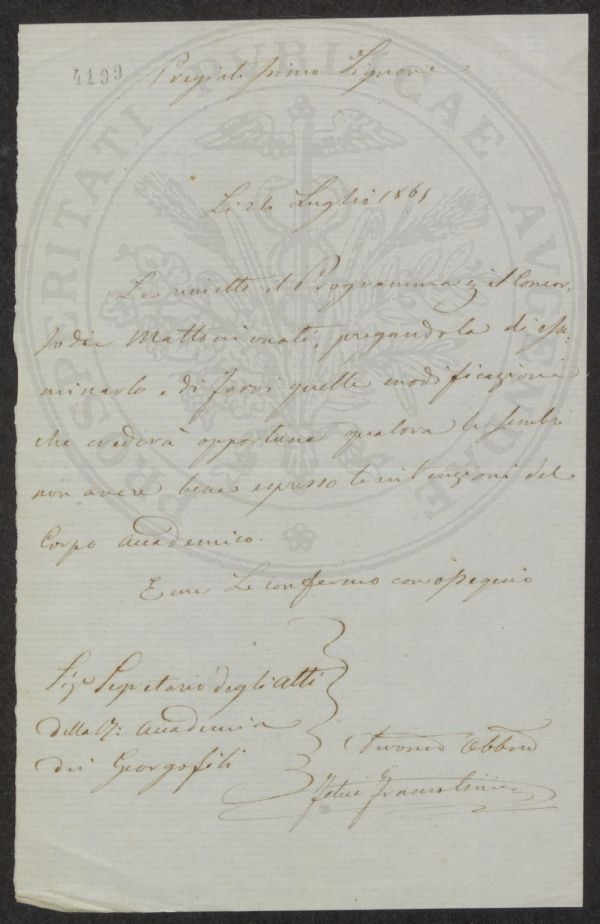 4199
Pregiatissimo Signore
Li 26 Luglio 1861
Le rimetto il Programma il Concor-
Mattoni pregandola di esa-
minarlo e di farvi quelle modificazioni
che crederà opportune qualora le sembri
non avere bene espresso le intenzioni del
Corpo Accademico.
E me Le confermo con ossequio
Sigr Segretario degli Atti
della R: Accademia
dei Georgofili
Devomo Obbmo
Felice Francolini
PROSPERITATI PUBLICAE AUGENDAE